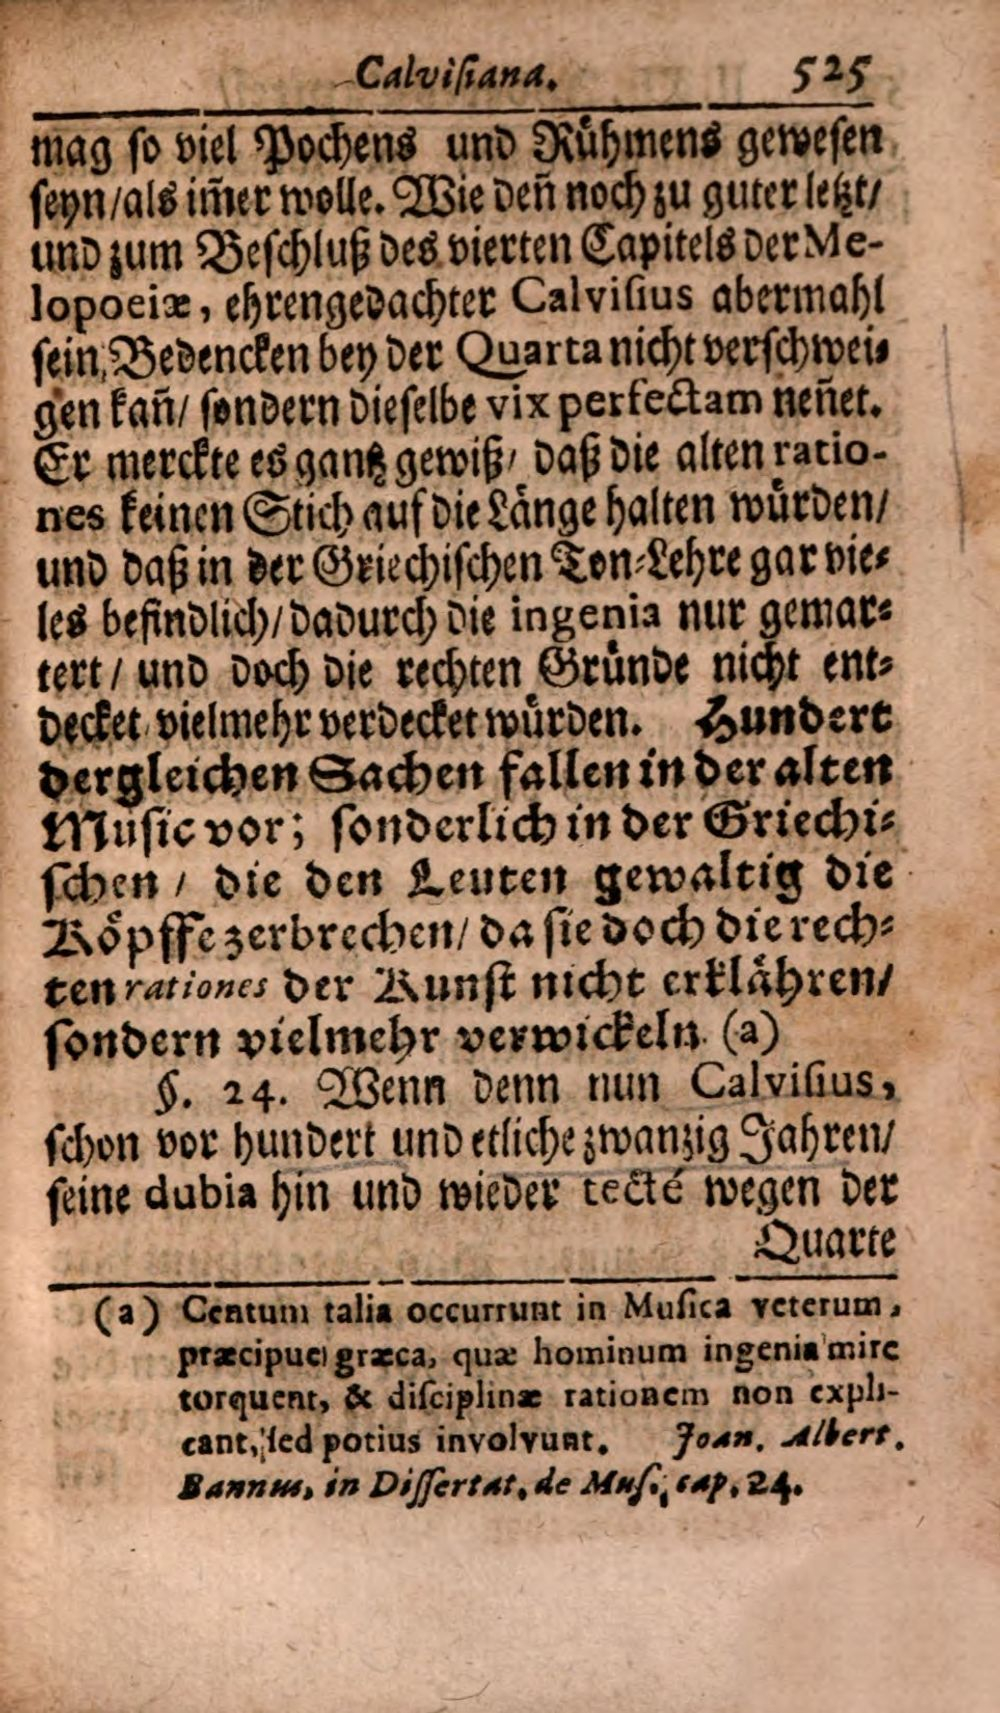 Calviſiana. 525
mag ſo viel Pochens und Rühmens geweſen
ſeyn/als im̃er wolle. Wie den̄ noch zu guter letzt/
und zum Beſchluß des vierten Capitels der Me-
lopoeiæ, ehrengedachter Calviſius abermahl
ſein Bedencken bey der Quarta nicht verſchwei-
gen kan̄/ ſondern dieſelbe vix perfectam nen̄et.
Er merckte es gantz gewiß/ daß die alten ratio-
nes keinen Stich auf die Länge halten würden/
und daß in der Griechiſchen Ton-Lehre gar vie-
les befindlich/ dadurch die ingenia nur gemar-
tert/ und doch die rechten Gründe nicht ent-
decket vielmehr verdecket würden. Hundert
dergleichen Sachen fallen in der alten
Muſic vor; ſonderlich in der Griechi-
ſchen / die den Leuten gewaltig die
Köpffe zerbrechen/ da ſie doch die rech-
ten rationes der Kunſt nicht erklähren/
ſondern vielmehr verwickeln. (a)
§. 24. Wenn denn nun Calviſius,
ſchon vor hundert und etliche zwanzig Jahren/
ſeine dubia hin und wieder tecté wegen der
Quarte
(a) Centum talia occurrunt in Muſica veterum,
præcipue græca, quæ hominum ingenia mire
torquent, & diſciplinæ rationem non expli-
cant, ſed potius involvunt. Joan. Albert.
Bannus, in Diſſertat. de Muſ. cap. 24.